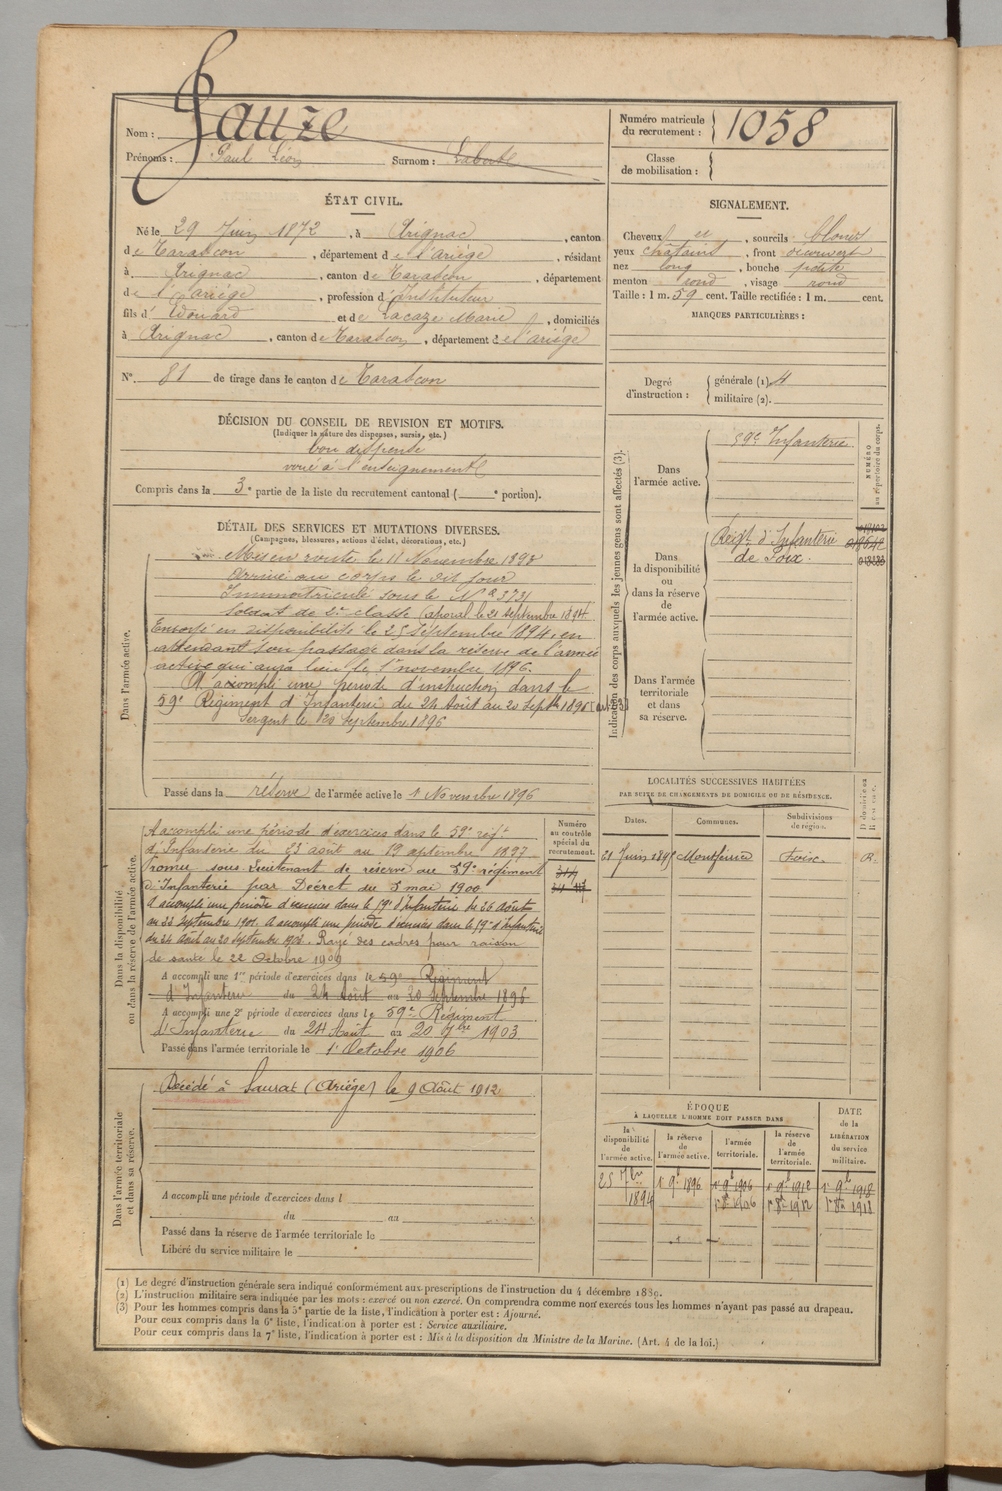 Nom : Sauze
Prénoms : Paul Léon Surnom :
Numéro matricule du recrutement : 1058
Classe de mobilisation :
ÉTAT CIVIL.
Né le 29 Juin 1872, à Arignac, canton
de Tarascon, département de l'Ariège, résidant
à Arignac, canton de Tarascon, département
de l'Ariège, profession d'Instituteur
fils d'Edouard et de Lacaze Marie, domiciliés
à Arignac, canton de Tarascon, département de l'ariège
N° 81 de tirage dans le canton de Tarascon
SIGNALEMENT.
Cheveux et, sourcils blonds
yeux chatains, front découvert
nez long, bouche petite
menton rond, visage rond
Taille : 1 m. 59 cent. Taille rectifiée : 1 m. cent.
MARQUES PARTICULIÈRES :
Degré d'instruction : générale (1). 4
militaire (2).
DÉCISION DU CONSEIL DE REVISION ET MOTIFS.
(Indiquer la nature des dispenses, sursis, etc.)
bon dispensé
voué à l'enseignement
Compris dans la 3e partie de la liste du recrutement cantonal ( e portion).
DÉTAIL DES SERVICES ET MUTATIONS DIVERSES.
(Campagnes, blessures, actions d'éclat, décorations, etc.)
Dans l'armée active.
Mis en route le 11 Novembre 1893
Arrivé au corps le dit jour
Immatriculé sous le N° 3731
Soldat de 2e classe Caporal le 21 septembre 1894
Envoyé en disponibilité le 25 Septembre 1894, en
attendant son passage dans la réserve de l'armée
active qui aura lieu le 1er novembre 1896.
A accompli une période d'instruction dans le
59e Régiment d'Infanterie du 24 Août au 20 Septbre 1896
Sergent le 20 Septembre 1896
Passé dans la réserve de l'armée active le 1 Novembre 1896
Indication des corps auxquels les jeunes gens sont affectés (3).
NUMÉRO au répertoire du corps.
Dans l'armée active.
59e Infanterie
Dans la disponibilité ou dans la réserve de l'armée active.
Régt d'Infanterie
de Foix.
Dans l'armée territoriale et dans sa réserve.
LOCALITÉS SUCCESSIVES HABITÉES
PAR SUITE DE CHANGEMENTS DE DOMICILE OU DE RÉSIDENCE.
Dates. Communes. Subdivisions de région. D domicile ou R résidence.
21 Juin 1895 Montferrier Foix. R.
Dans la disponibilité ou dans la réserve de l'armée active.
Numéro au contrôle spécial du recrutement.
A accompli une période d'exercices dans le 59e régt
d'Infanterie du 23 août au 19 septembre 1897
Promu sous-Lieutenant de réserve au 59e régiment
d'Infanterie par Décret du 3 mai 1900
A accompli une période d'exercices dans le 19e d'Infanterie du 26 Août
au 22 Septembre 1901. A accompli une période d'exercices dans le 19e d'Infanterie
du 24 Août au 20 Septembre 1903. Rayé des cadres pour raison
de santé le 22 Octobre 1909
A accompli une 1re période d'exercices dans le 59e Régiment
d'Infanterie du 24 Août au 20 Septembre 1896
A accompli une 2e période d'exercices dans le 59e Régiment
d'Infanterie du 24 Août au 20 7bre 1903.
Passé dans l'armée territoriale le 1er Octobre 1906
Dans l'armée territoriale et dans sa réserve.
Décédé à Saurat (Ariège) le 9 Août 1912
A accompli une période d'exercices dans l
du au
Passé dans la réserve de l'armée territoriale le
Libéré du service militaire le
ÉPOQUE
À LAQUELLE L'HOMME DOIT PASSER DANS
DATE de la LIBÉRATION du service militaire.
la disponibilité de l'armée active. la réserve de l'armée active. l'armée territoriale. la réserve de l'armée territoriale.
25 7bre 1894 1er 9bre 1896 1er 9bre 1906 1er 9bre 1912 1er 9bre 1918
1er 8bre 1906 1er 8bre 1912 1er 8bre 1918
(1) Le degré d'instruction générale sera indiqué conformément aux prescriptions de l'instruction du 4 décembre 1889.
(2) L'instruction militaire sera indiquée par les mots : exercé ou non exercé. On comprendra comme non exercés tous les hommes n'ayant pas passé au drapeau.
(3) Pour les hommes compris dans la 5e partie de la liste, l'indication à porter est : Ajourné.
Pour ceux compris dans la 6e liste, l'indication à porter est : Service auxiliaire.
Pour ceux compris dans la 7e liste, l'indication à porter est : Mis à la disposition du Ministre de la Marine. (Art. 4 de la loi.)